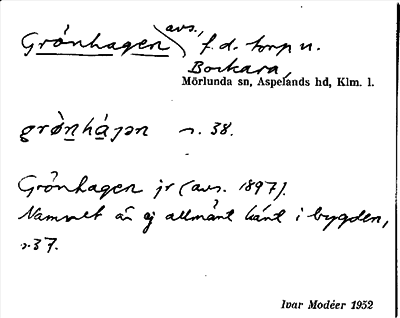 Grönhagen avs., f.d. torp u.
Bockara,
Mörlunda sn, Aspelands hd, Klm. l.
grø̀nhá̱ɡən s. 38.
Grönhagen jr (avs. 1897).
Namnet är ej allmänt känt i bygden,
s. 37.
Ivar Modéer 1952